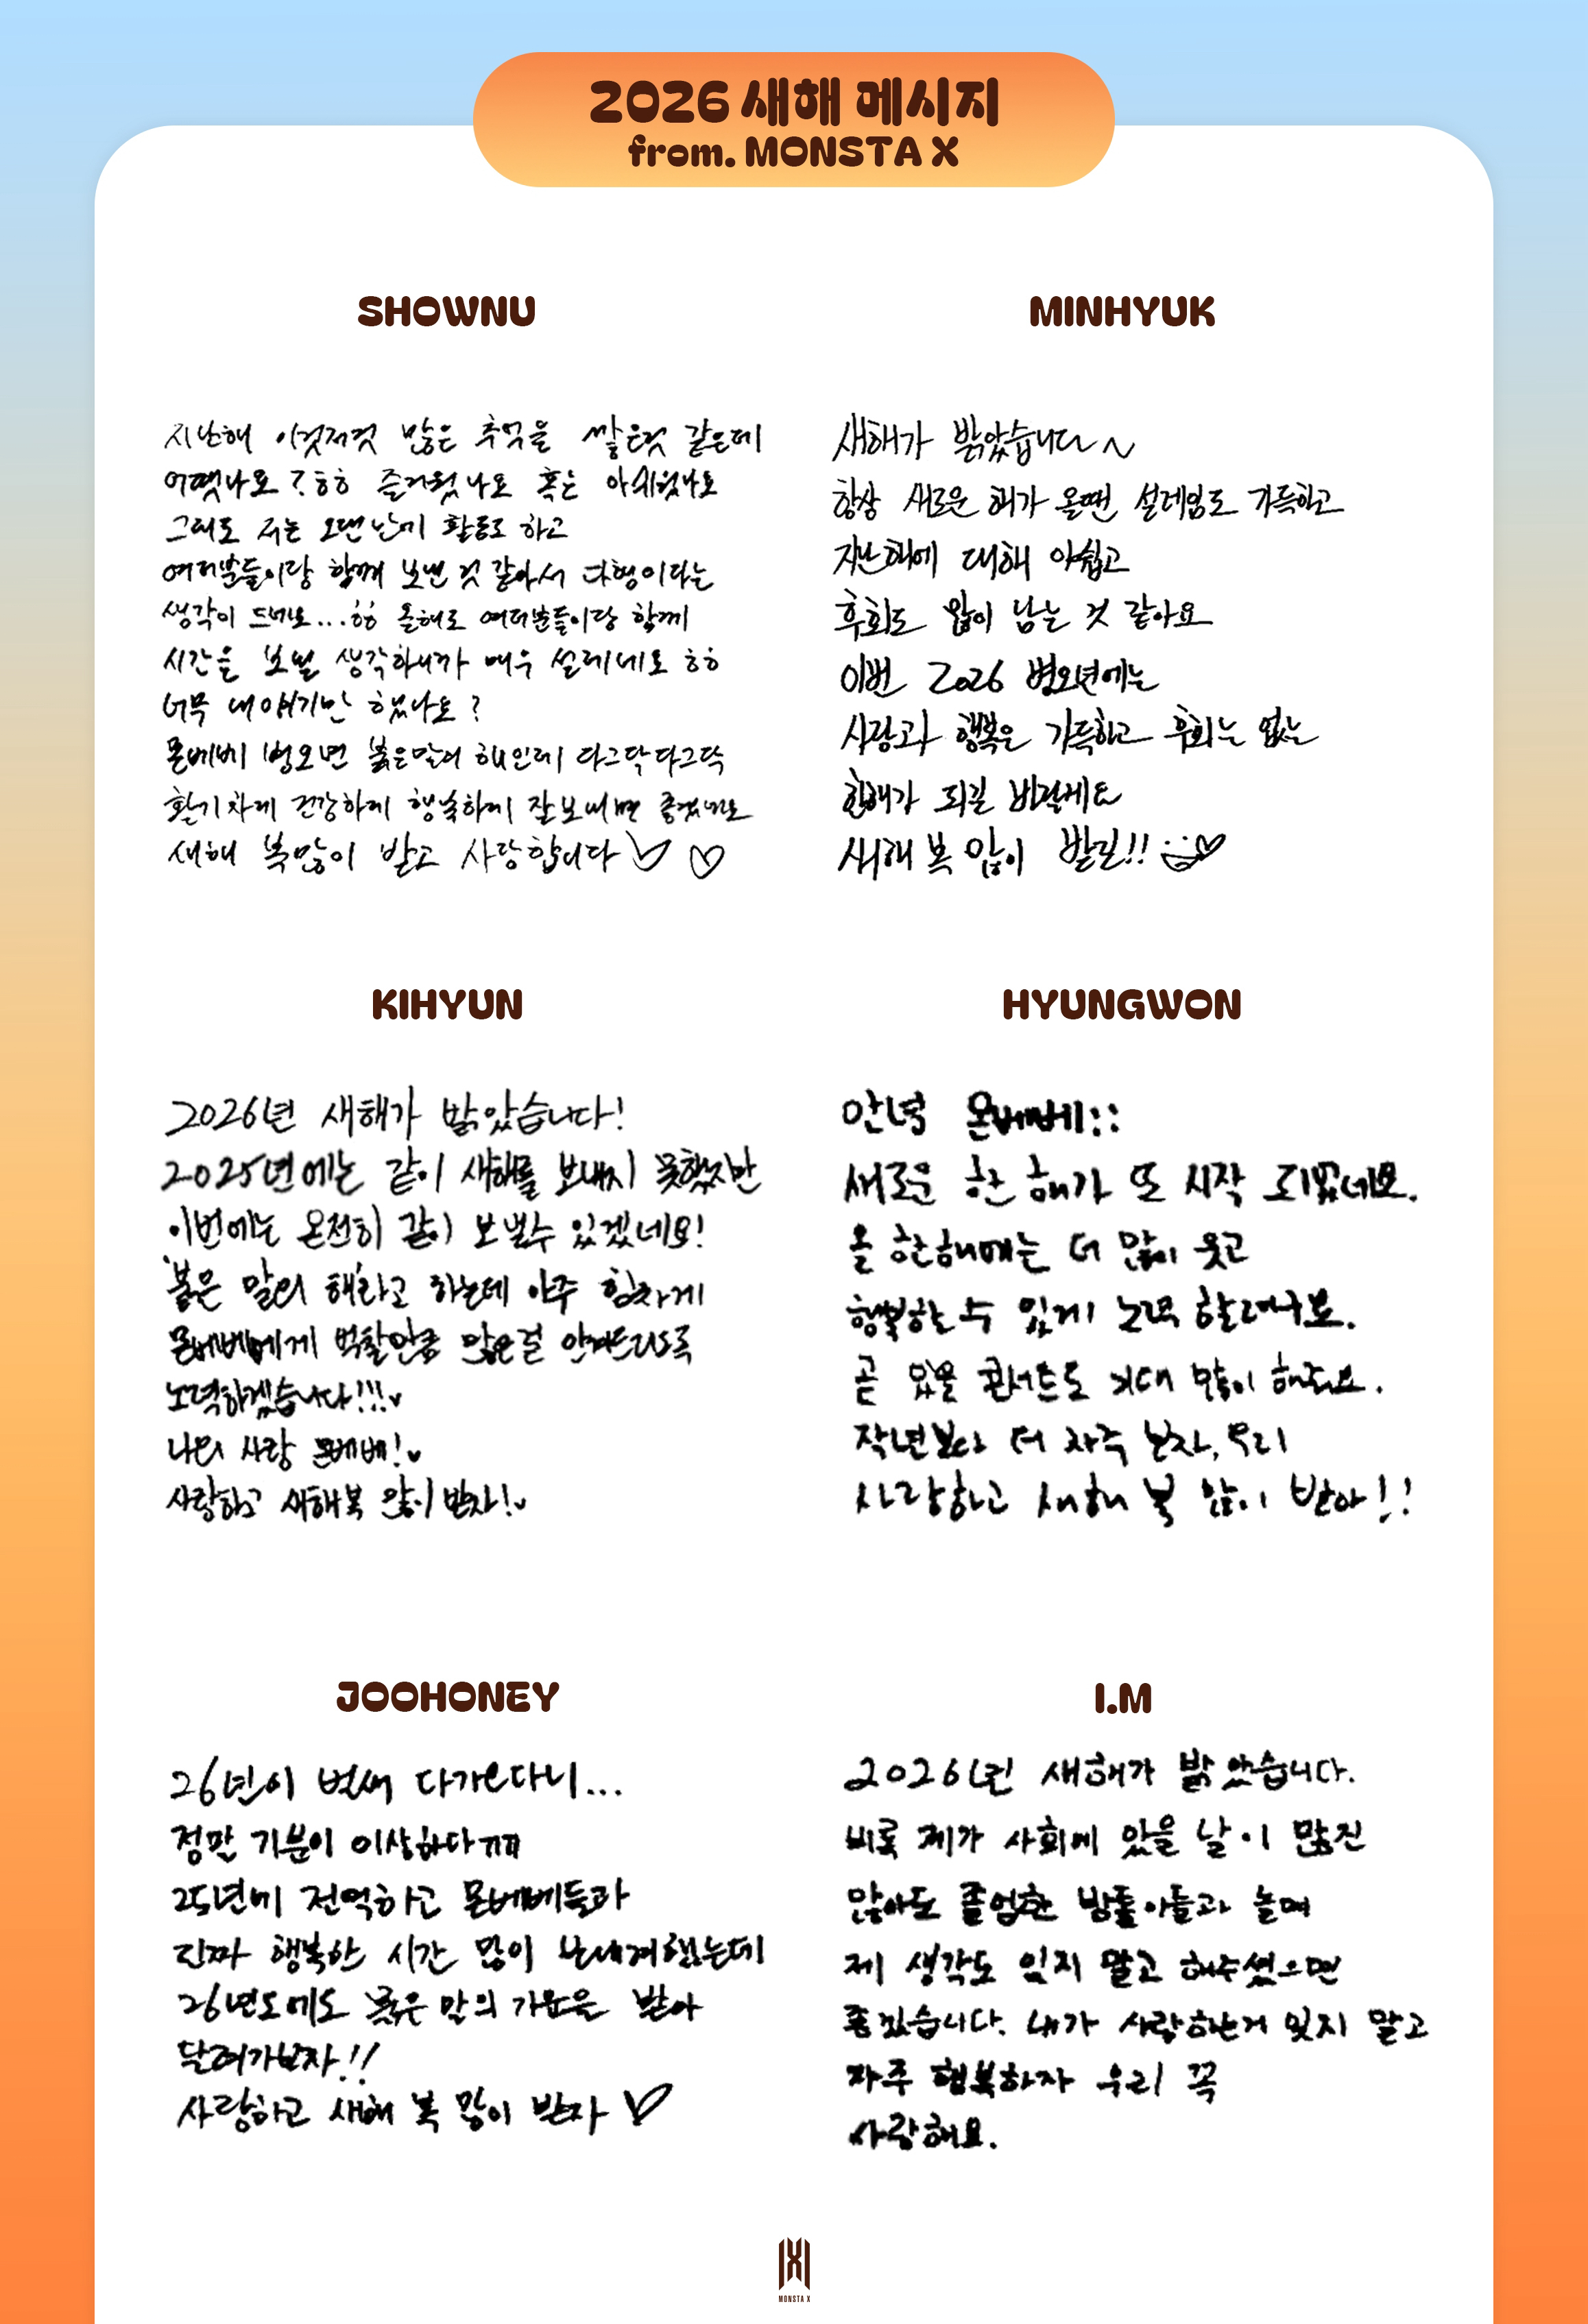 2026 새해 메시지
from. MONSTA X
SHOWNU
지난해 이것저것 많은 추억을 쌓은것 같은데
어땠나요? ㅎㅎ 즐거웠나요 혹은 아쉬웠나요
그래도 저는 오랜만에 활동도 하고
여러분들이랑 함께 보낸 것 같아서 다행이라는
생각이 드네요...ㅎㅎ 올해도 여러분들이랑 함께
시간을 보낼 생각하니까 매우 설레네요 ㅎㅎ
너무 내 얘기만 했나요?
몬베베 병오년 붉은말의 해인데 다그닥 다그닥
활기차게 건강하게 행복하게 잘 보내면 좋겠네요
새해 복 많이 받고 사랑합니다 ♡ ♡
MINHYUK
새해가 밝았습니다~
항상 새로운 해가 올땐 설레임도 가득하고
지난해에 대해 아쉽고
후회도 많이 남는 것 같아요
이번 2026 병오년에는
사랑과 행복은 가득하고 후회는 없는
한해가 되길 바랄게요
새해 복 많이 받길!!
KIHYUN
2026년 새해가 밝았습니다!
2025년에는 같이 새해를 보내지 못했지만
이번에는 온전히 같이 보낼수 있겠네요!
'붉은 말의 해'라고 하는데 아주 힘차게
몬베베에게 벅찰만큼 많은걸 안겨드리도록
노력하겠습니다!!!♥
나의 사랑 몬베베!♥
사랑하고 새해복 많이 받자!♥
HYUNGWON
안녕 몬베베::
새로운 한 해가 또 시작 되었네요.
올 한해에는 더 많이 웃고
행복할 수 있게 노력 할려구요.
곧 있을 콘서트도 기대 많이 해줘요.
작년보다 더 자주 보자, 우리
사랑하고 새해 복 많이 받아!!
JOOHONEY
26년이 벌써 다가온다니...
정말 기분이 이상하다ㅠㅠ
25년에 전역하고 몬베베들과
진짜 행복한 시간 많이 보내려했는데
26년도에도 붉은 말의 기운을 받아
달려가보자!!
사랑하고 새해 복 많이 받자 ♡
I.M
2026년 새해가 밝았습니다.
비록 제가 사회에 있을 날이 많진
않아도 졸업한 방돌이들과 놀며
제 생각도 잊지 말고 해주셨으면
좋겠습니다. 내가 사랑하는거 잊지 말고
자주 행복하자 우리 꼭
사랑해요.
MONSTA X